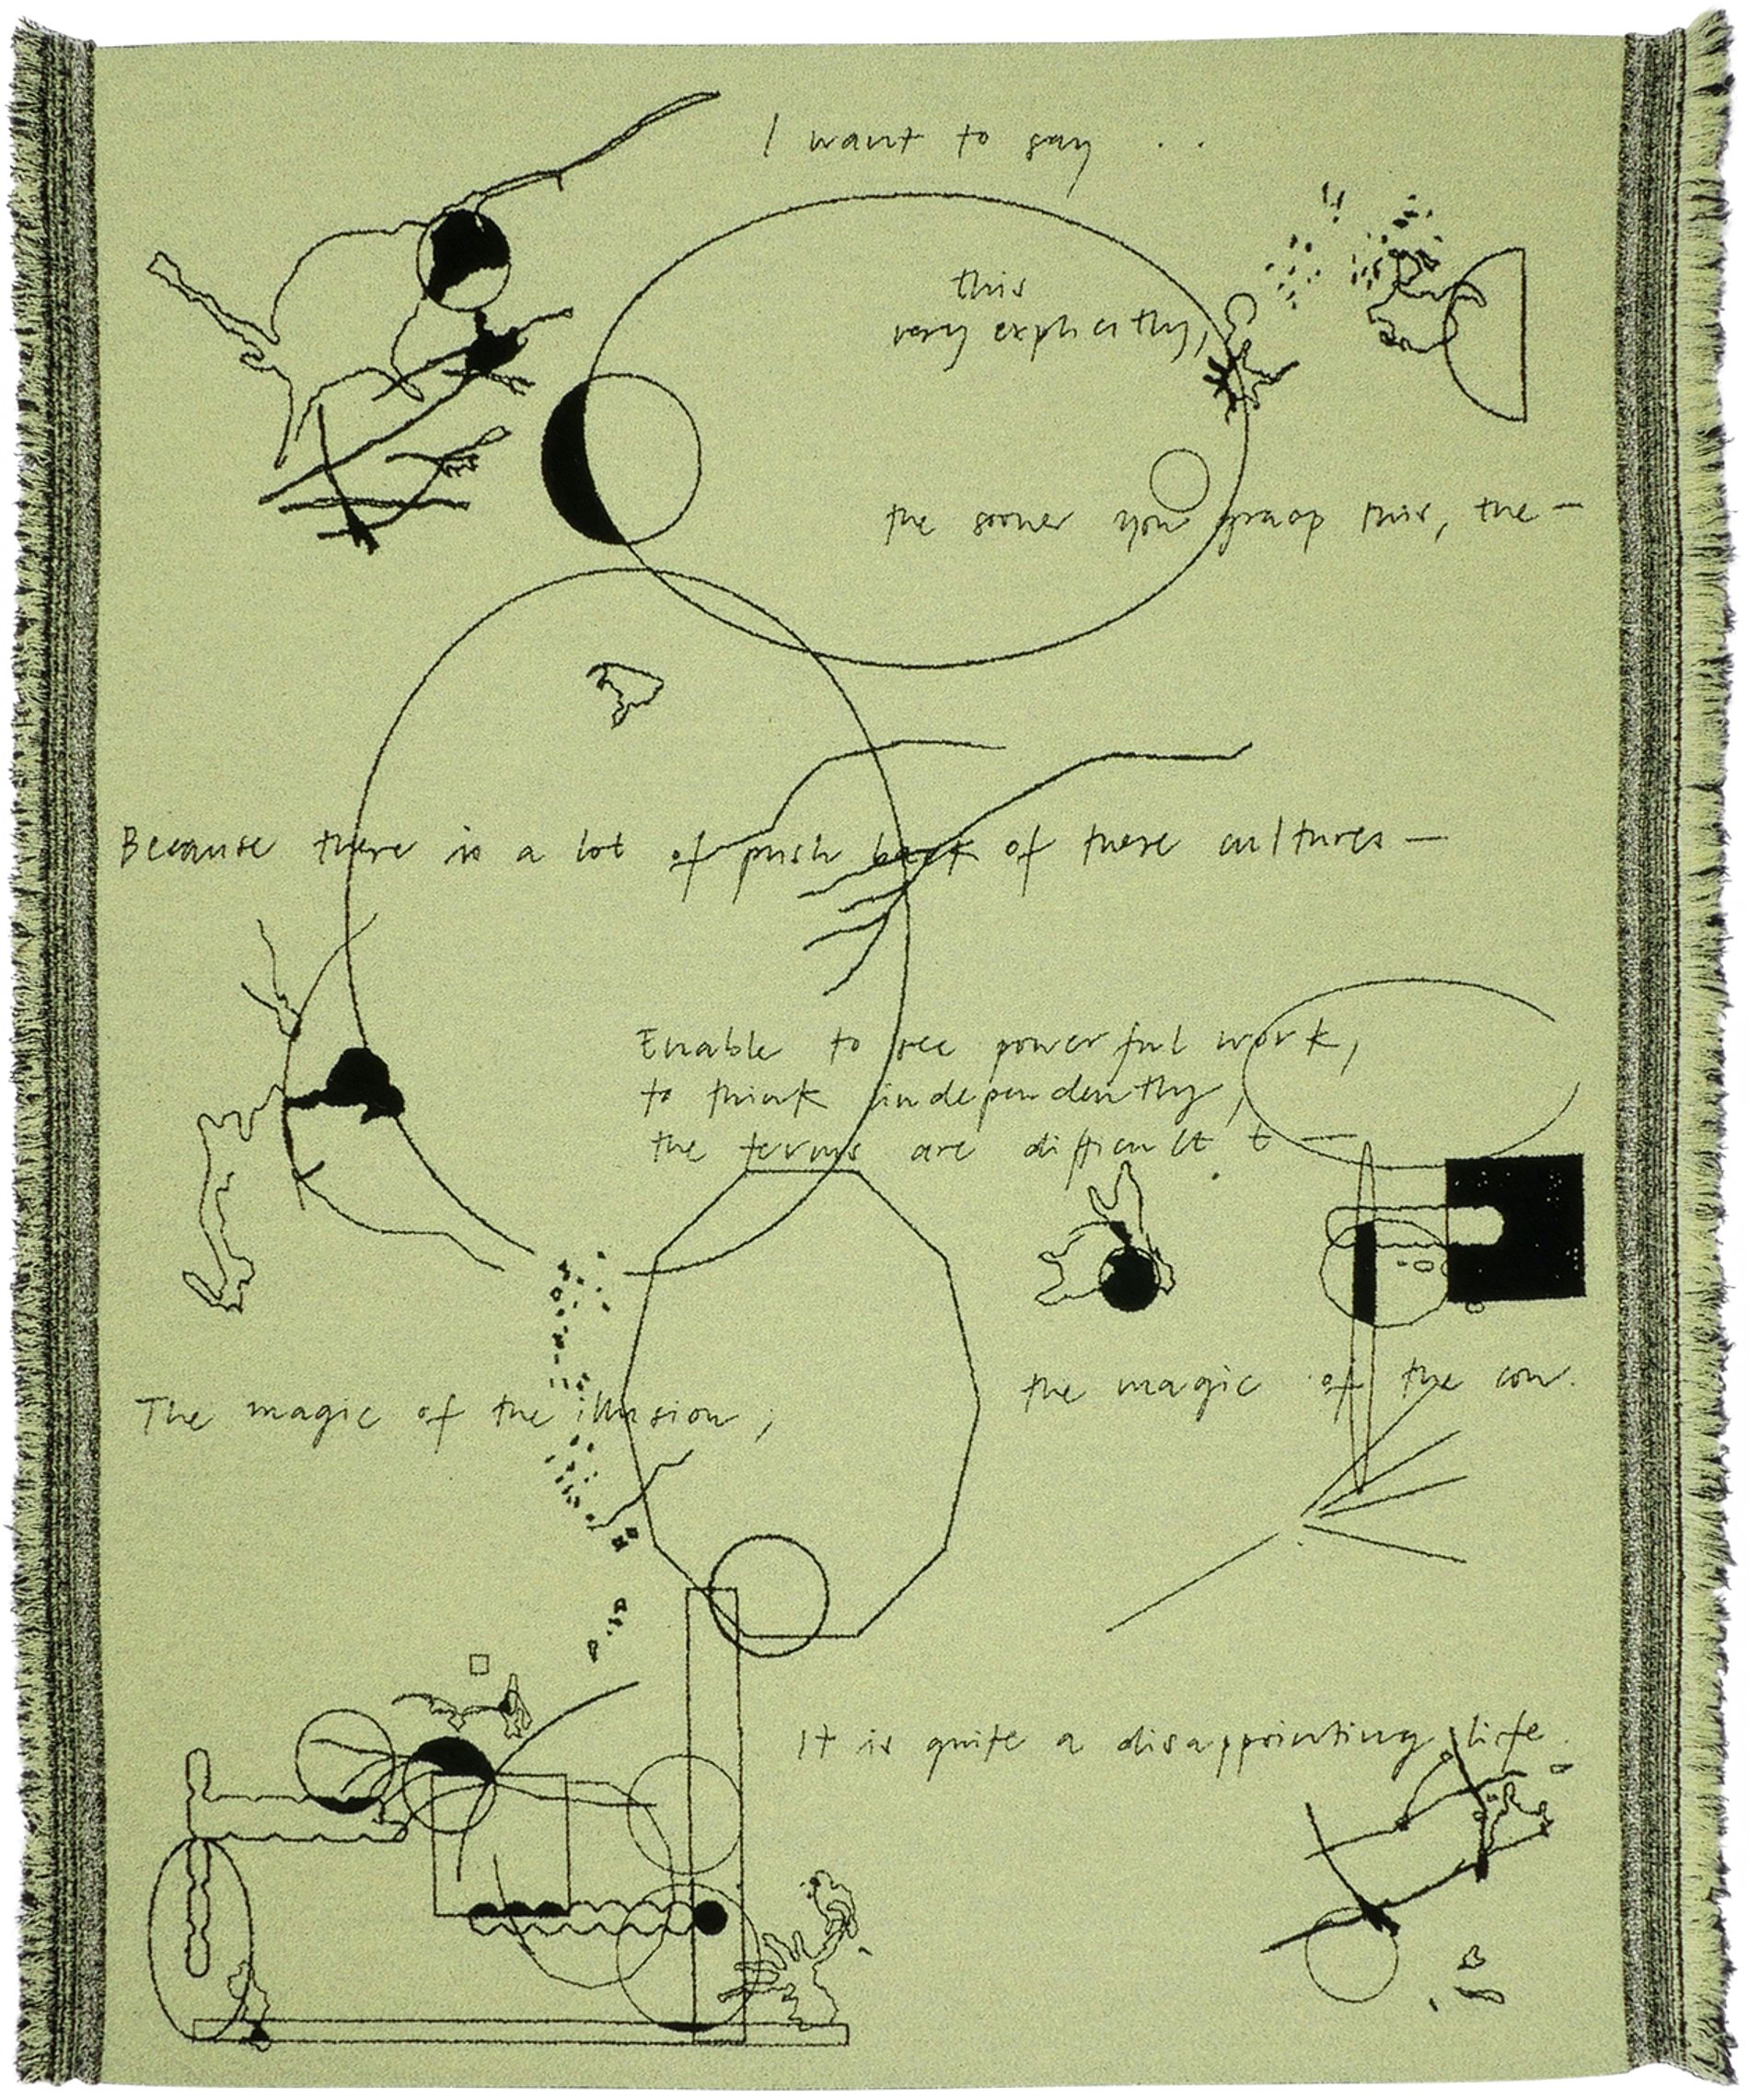 I want to say ..
this
very explicitly,
the sooner you grasp this, the —
Because there is a lot of push back of these cultures —
Enable to see powerful work,
to think independently,
the terms are difficult t —
the magic of the cow.
The magic of the illusion,
It is quite a disappointing life.